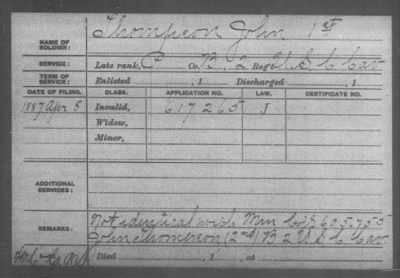 NAME OF SOLDIER: Thompson John 1st
SERVICE: Late rank, P Co. B, 2 Reg't U S C Cav
TERM OF SERVICE: Enlisted , 1 Discharged , 1
DATE OF FILING. CLASS. APPLICATION NO. LAW. CERTIFICATE NO.
1887 Apr 8 Invalid, 617,265 J
Widow,
Minor,
ADDITIONAL SERVICES:
REMARKS: Not identical with
John Thompson (2nd) B 2 U S C Cav
Died , 1 , at